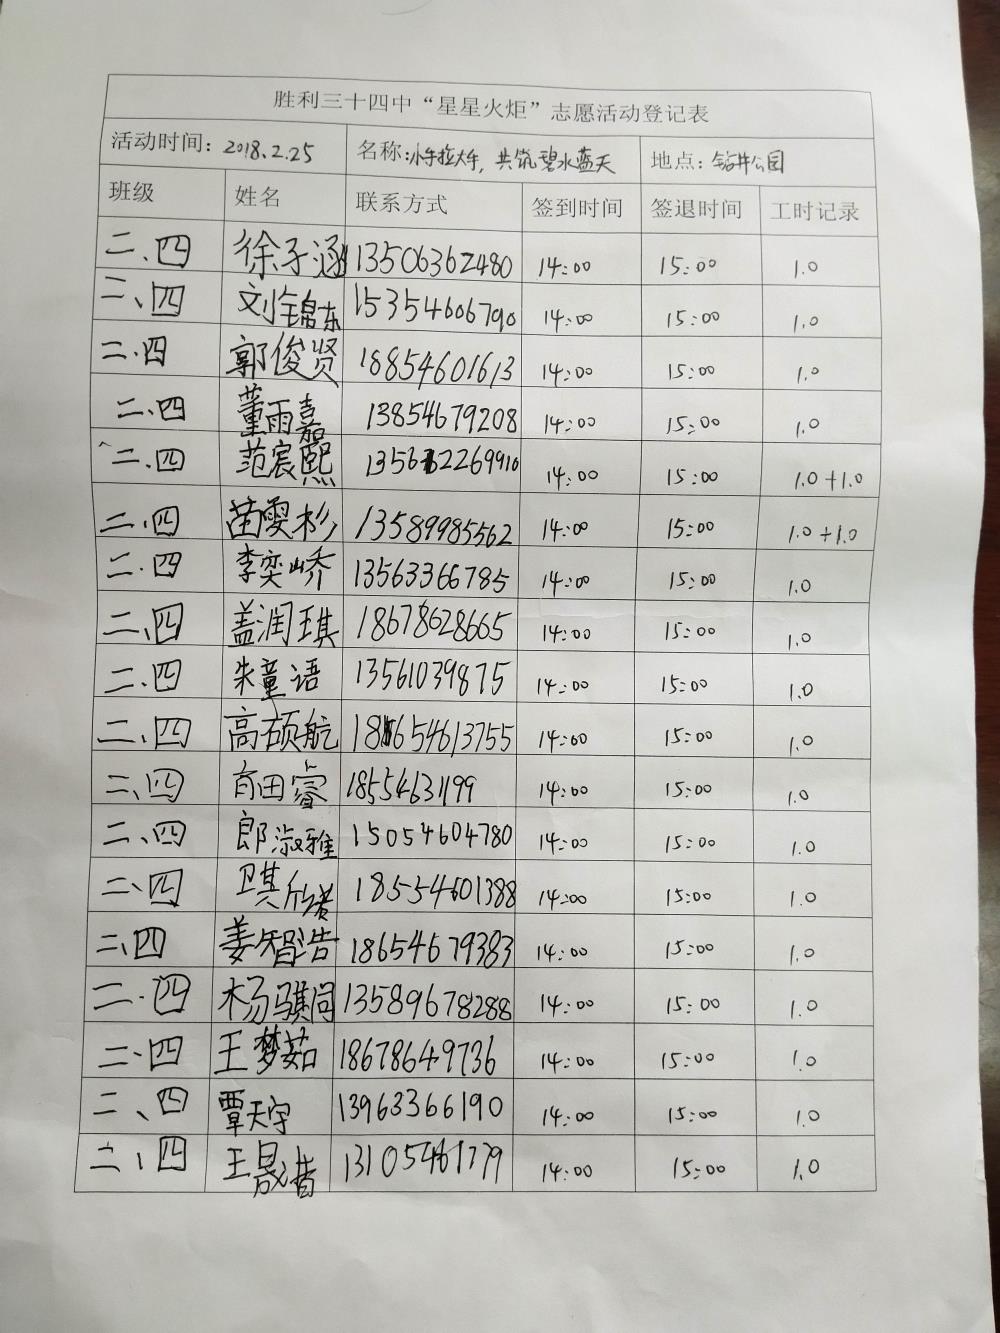 胜利三十四中“星星火炬”志愿活动登记表
活动时间：2018.2.25 名称：小手拉大手，共筑碧水蓝天 地点：钻井公园
班级 姓名 联系方式 签到时间 签退时间 工时记录
二、四 徐子涵 13506362480 14:00 15:00 1.0
二、四 刘锦东 15354606790 14:00 15:00 1.0
二.四 郭俊贤 18854601613 14:00 15:00 1.0
二、四 董雨嘉 13854679208 14:00 15:00 1.0
二.四 范宸熙 14:00 15:00 1.0+1.0
二.四 苗雯杉 13589985562 14:00 15:00 1.0+1.0
二.四 李奕峤 13563366785 14:00 15:00 1.0
二、四 盖润琪 18678628665 14:00 15:00 1.0
二.四 朱童语 13561039875 14:00 15:00 1.0
二、四 高硕航 18654613755 14:00 15:00 1.0
二、四 田睿 18554631199 14:00 15:00 1.0
二、四 郎淑雅 15054604780 14:00 15:00 1.0
二、四 18554601388 14:00 15:00 1.0
二、四 姜智浩 18654679383 14:00 15:00 1.0
二.四 杨骐闻 13589678288 14:00 15:00 1.0
二、四 王梦茹 18678649736 14:00 15:00 1.0
二、四 覃天宇 13963366190 14:00 15:00 1.0
二、四 王晟昔 13105461779 14:00 15:00 1.0